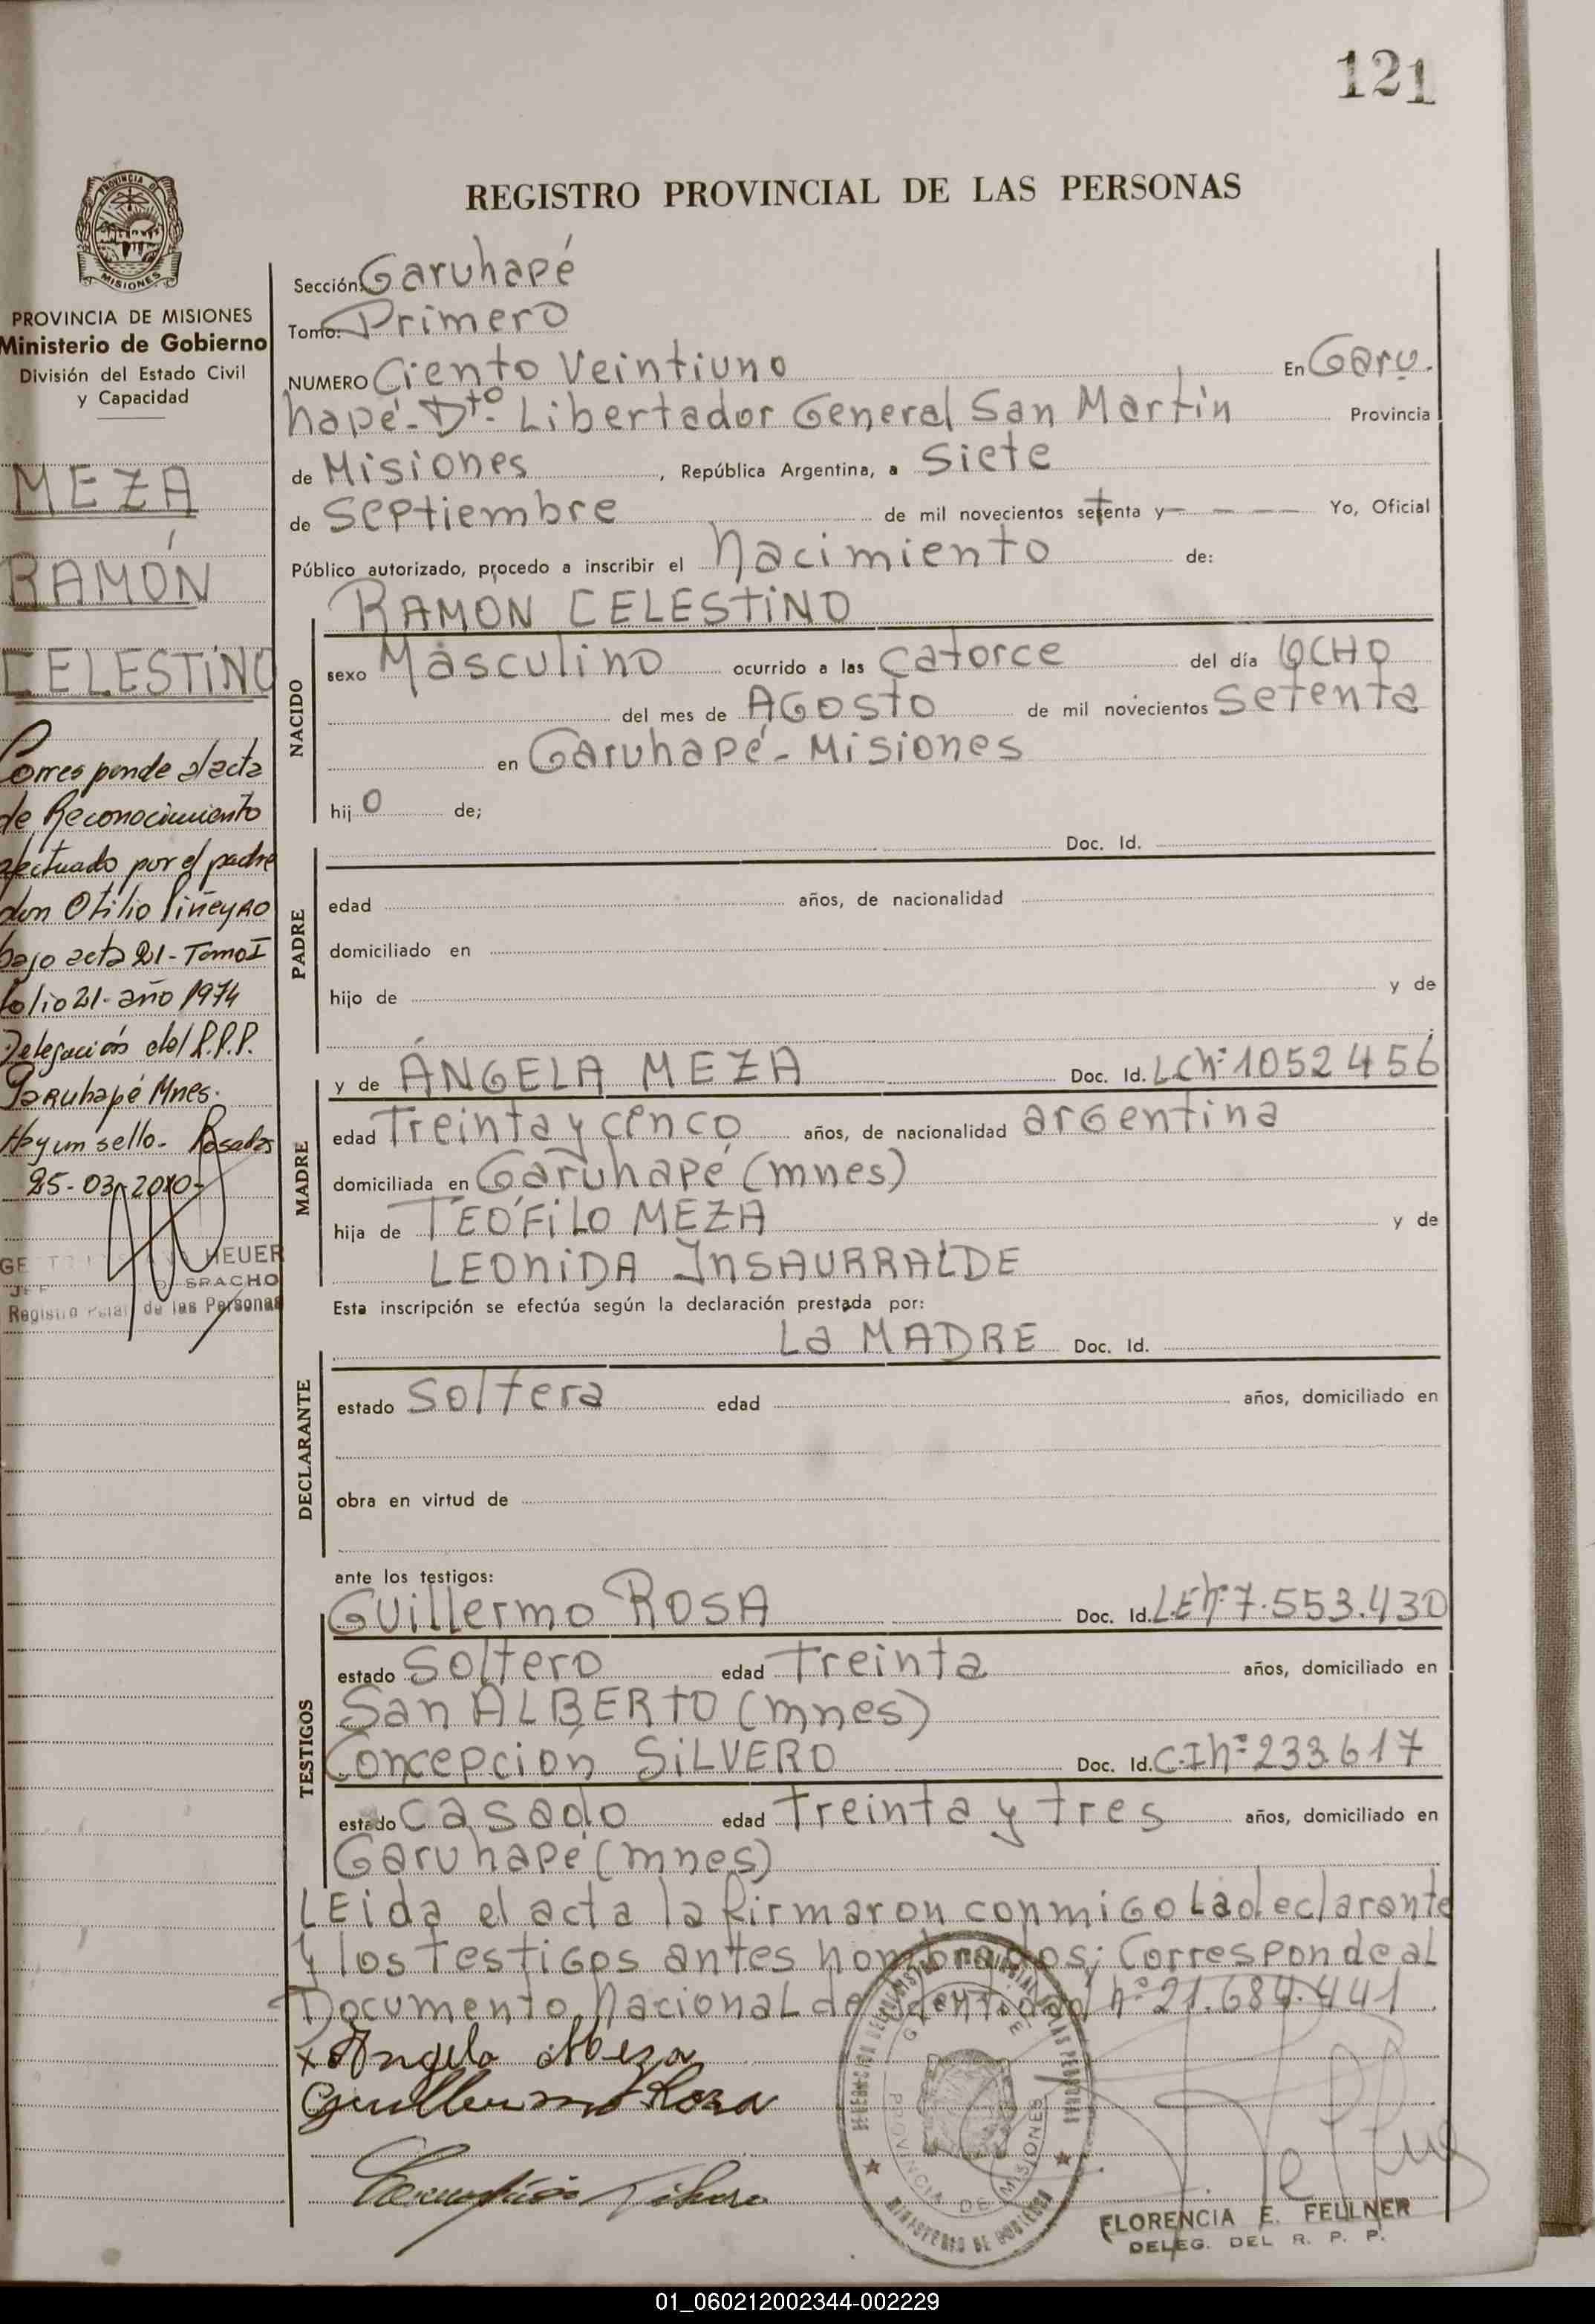 121
PROVINCIA DE
MISIONES
PROVINCIA DE MISIONES
Ministerio de Gobierno
División del Estado Civil
y Capacidad
MEZA
RAMÓN
CELESTINO
Corresponde al acta
de Reconocimiento
efectuado por el padre
don Otilio Piñeyro
bajo acta 21 - Tomo I
folio 21 - año 1974
Delegación del R.P.P.
Garuhapé Mnes.
Hay un sello - Posadas
25-03-2010-
HEUER
SPACHO
Registro de las Personas
REGISTRO PROVINCIAL DE LAS PERSONAS
Sección: Garuhapé
Tomo: Primero
NUMERO Ciento Veintiuno En Garu.
hapé - Dto. Libertador General San Martín Provincia
de Misiones, República Argentina, a Siete
de Septiembre de mil novecientos setenta y - - - - Yo, Oficial
Público autorizado, procedo a inscribir el Nacimiento de:
RAMON CELESTINO
NACIDO
sexo Masculino ocurrido a las catorce del día OCHO
del mes de AGOSTO de mil novecientos Setenta
en Garuhapé - Misiones
hijo de;
Doc. Id.
PADRE
edad años, de nacionalidad
domiciliado en
hijo de y de
y de ÁNGELA MEZA Doc. Id. LC Nº 1052456
MADRE
edad Treinta y cinco años, de nacionalidad argentina
domiciliada en Garuhapé (mnes)
hija de TEÓFILO MEZA y de
LEONIDA INSAURRALDE
Esta inscripción se efectúa según la declaración prestada por:
La MADRE Doc. Id.
DECLARANTE
estado soltera edad años, domiciliado en
obra en virtud de
ante los testigos:
Guillermo ROSA Doc. Id. LE Nº 7.553.430
TESTIGOS
estado soltero edad Treinta años, domiciliado en
San ALBERTO (mnes)
Concepción SILVERO Doc. Id. C.I Nº 233.617
estado casado edad Treinta y tres años, domiciliado en
Garuhapé (mnes)
LEida el acta la firmaron conmigo La declarante
y los testigos antes nombrados; Corresponde al
Documento Nacional de Identidad Nº 21.684.441
x Angela Meza
Guillermo Rosa
PROVINCIA DE MISIONES
MINISTERIO DE GOBIERNO
FLORENCIA E. FELLNER
DELEG. DEL R. P. P.
01_060212002344-002229